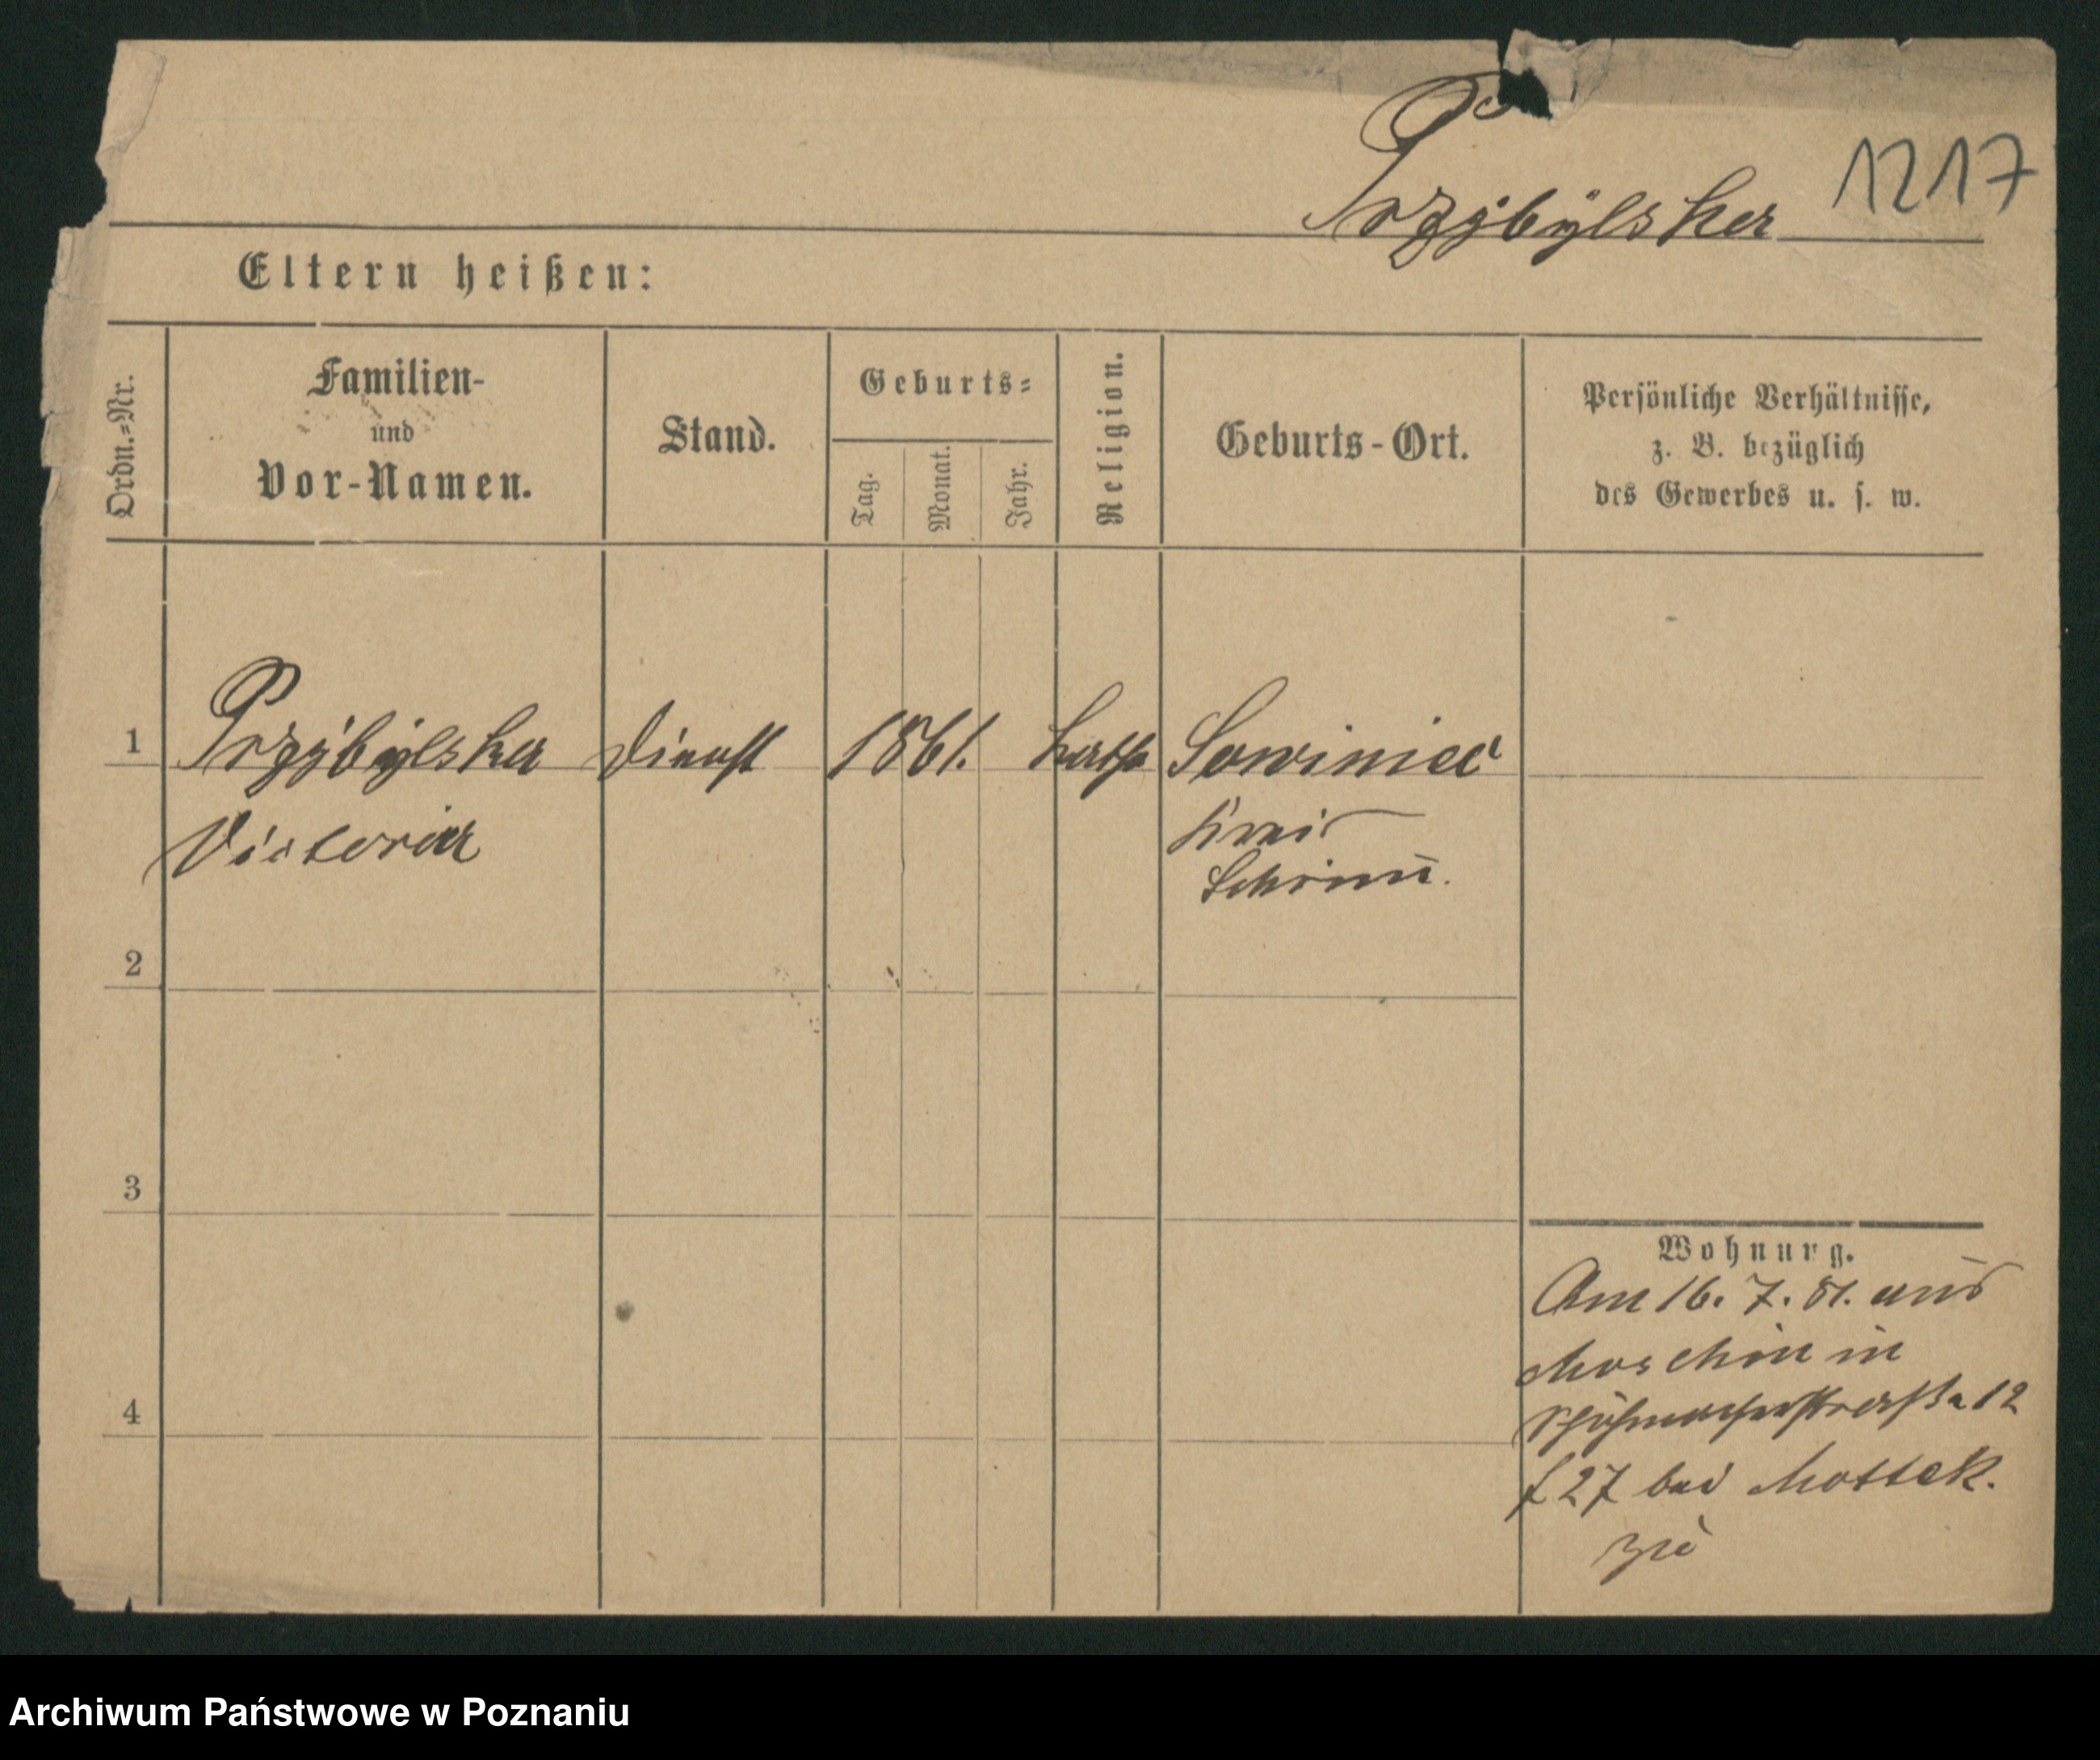 Przÿbÿlska
1217
Eltern heißen:
Ordn.-Nr.
Familien-
und
Vor-Namen.
Stand.
Geburts-
Tag.
Monat.
Jahr.
Religion.
Geburts-Ort.
Persönliche Verhältnisse,
z. B. bezüglich
des Gewerbes u. s. w.
1 Przÿbÿlska Dienst 1861. kath Sowiniec
Victoria Kreis
Schrimm.
2
3
4
Wohnung.
Am 16. 7. 81. aus
Moschin in
Schuhmacherstraße 12
f 27 bei Mottek.
zu
Archiwum Państwowe w Poznaniu